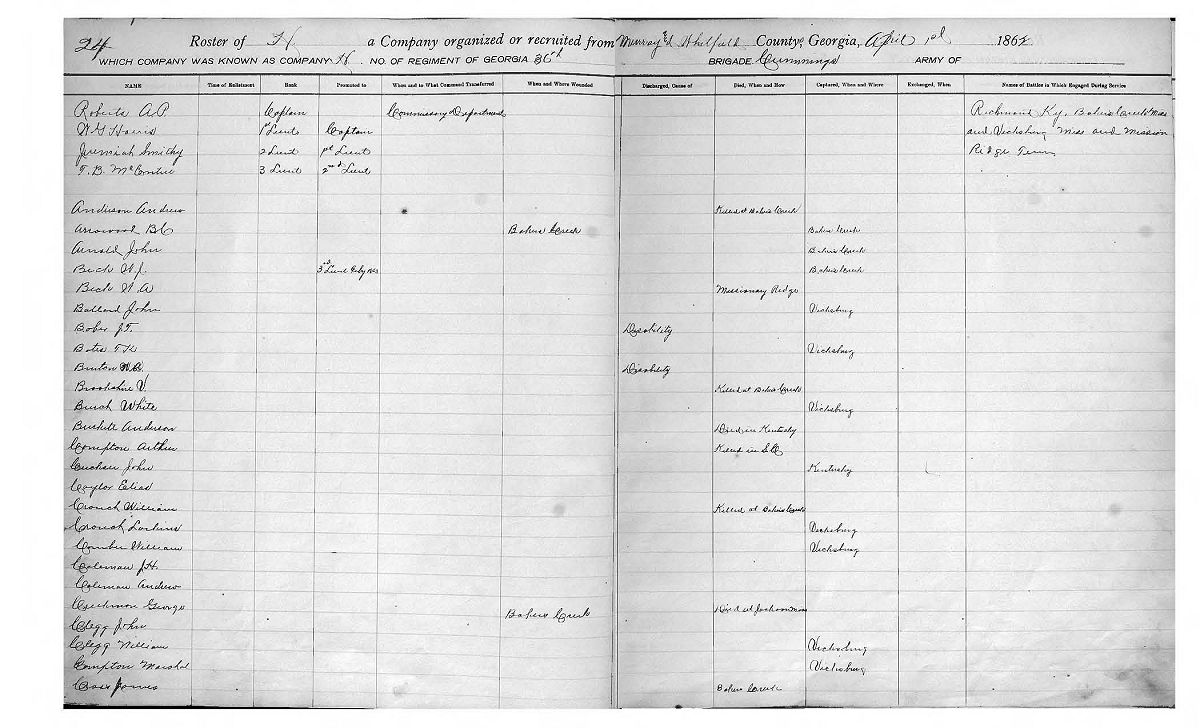 24 Roster of H a Company organized or recruited from Murray & Whitfield County, Georgia, April 1st 1862
WHICH COMPANY WAS KNOWN AS COMPANY H. NO. OF REGIMENT OF GEORGIA 36th BRIGADE Cummings ARMY OF
NAME Time of Enlistment Rank Promoted to When and to What Command Transferred When and Where Wounded Discharged, Cause of Died, When and How Captured, When and Where Exchanged, When Names of Battles in Which Engaged During Service
Roberts A.P. Captain Commissary Department Richmond Ky, Bakers Creek Miss
W.G. Harris 1st Lieut Captain and Vicksburg Miss and Mission
Jeremiah Smithy 2 Lieut 1st Lieut Ridge Tenn
T.B. 3 Lieut 2nd Lieut
Anderson Andrew Killed at Bakers Creek
Arrowood B C Bakers Creek Bakers Creek
Arnold John Bakers Creek
Beck W.J. 3rd Lieut Bakers Creek
Beck W.A Missionary Ridge
Ballard John Vicksburg
J.T. Disability
Bates T K Vicksburg
Disability
Brookshire V. Killed at Bakers Creek
Burch White Vicksburg
Anderson Died in Kentucky
Compton Arthur Killed in
John Kentucky
Caylor Elias
Crouch William Killed at Bakers Creek
Crouch Vicksburg
William Vicksburg
Coleman J.H.
Coleman Andrew
George Bakers Creek Died at Jackson Miss
Clegg John
Clegg William Vicksburg
Compton Marshal Vicksburg
James Bakers Creek